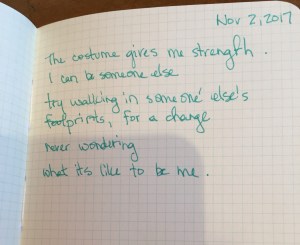 Nov 2, 2017
The costume gives me strength.
I can be someone else
try walking in someone else's
footprints, for a change
never wondering
what its like to be me.